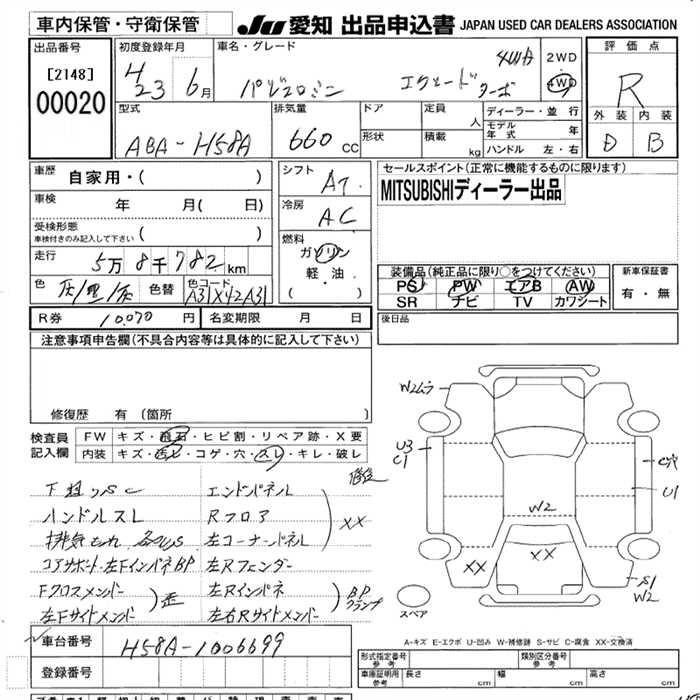 車内保管・守衛保管
JU 愛知 出品申込書 JAPAN USED CAR DEALERS ASSOCIATION
出品番号
[2148]
00020
初度登録年月
4/23 6月
車名・グレード
パジェロミニ エクシードターボ 4WD
2WD
4WD
評価点
R
外装 内装
D B
型式
ABA-H58A
排気量
660 cc
ドア
形状
定員 人
積載 kg
ディーラー・並行
モデル年式 年
ハンドル 左・右
車歴 自家用・( )
車検 年 月( 日)
受検形態
車検付きのみ記入して下さい ( )
走行 5万8千782km
色 灰/黒/灰 色替 色コード
A31X42A31
シフト
AT
冷房
AC
燃料
ガソリン
軽・油
・( )
セールスポイント(正常に機能するものに限ります)
MITSUBISHIディーラー出品
装備品(純正品に限り○をつけてください)
PS PW エアB AW
SR ナビ TV カワシート
新車保証書
有・無
R券 10,070円 名変期限 月 日
後日品
注意事項申告欄(不具合内容等は具体的に記入して下さい)
修復歴 有 (箇所 )
検査員
記入欄
FW キズ・飛石・ヒビ割・リペア跡・X要
内装 キズ・汚レ・コゲ・穴・スレ・キレ・破レ
下廻りSC
ハンドルスレ
コアサポート・左FインパネBP
Fクロスメンバー
左Fサイドメンバー
歪
修後
エンドパネル
Rフロア
左コーナーパネル
XX
左Rフェンダー
左Rインパネ
左右Rサイドメンバー
BP
クランプ
W2ムラ
U3
C1
C穴
U1
W2
XX
XX
S1
W2
スペア
A-キズ E-エクボ U-凹み W-補修跡 S-サビ C-腐食 XX-交換済
車台番号 H58A-1006699
登録番号
形式指定番号
参考
類別区分番号
参考
車庫証明用
参考
長さ cm 幅 cm 高さ cm